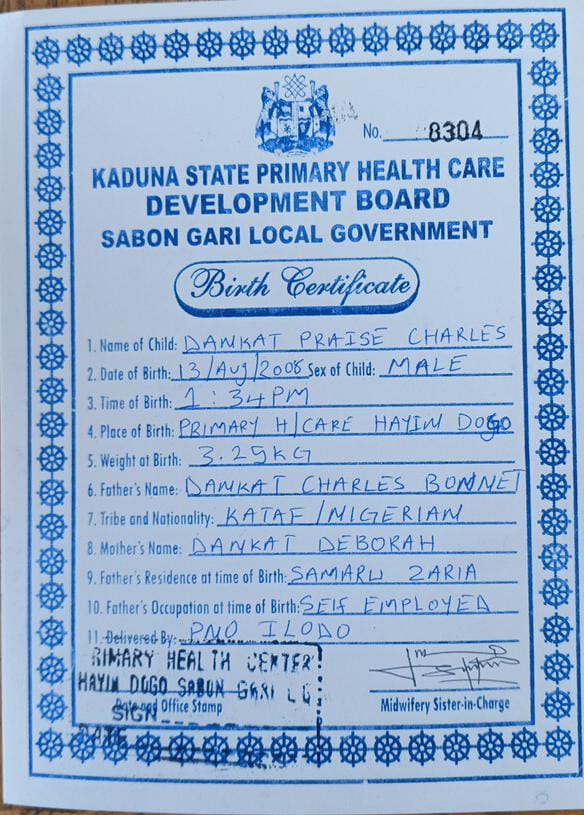 No. 8304
KADUNA STATE PRIMARY HEALTH CARE
DEVELOPMENT BOARD
SABON GARI LOCAL GOVERNMENT
Birth Certificate
1. Name of Child: DANKAT PRAISE CHARLES
2. Date of Birth: 13/Aug/2008 Sex of Child: MALE
3. Time of Birth: 1:34PM
4. Place of Birth: PRIMARY H/CARE HAYIN DOGO
5. Weight at Birth: 3.25KG
6. Father's Name: DANKAT CHARLES BONNET
7. Tribe and Nationality: KATAF/NIGERIAN
8. Mother's Name: DANKAT DEBORAH
9. Father's Residence at time of Birth: SAMARU ZARIA
10. Father's Occupation at time of Birth: SELF EMPLOYED
11. Delivered By: PNO ILODO
RIMARY HEALTH CENTER
HAYIN DOGO SABON GARI L G
Date and Office Stamp
SIGN
DATE
Midwifery Sister-in-Charge